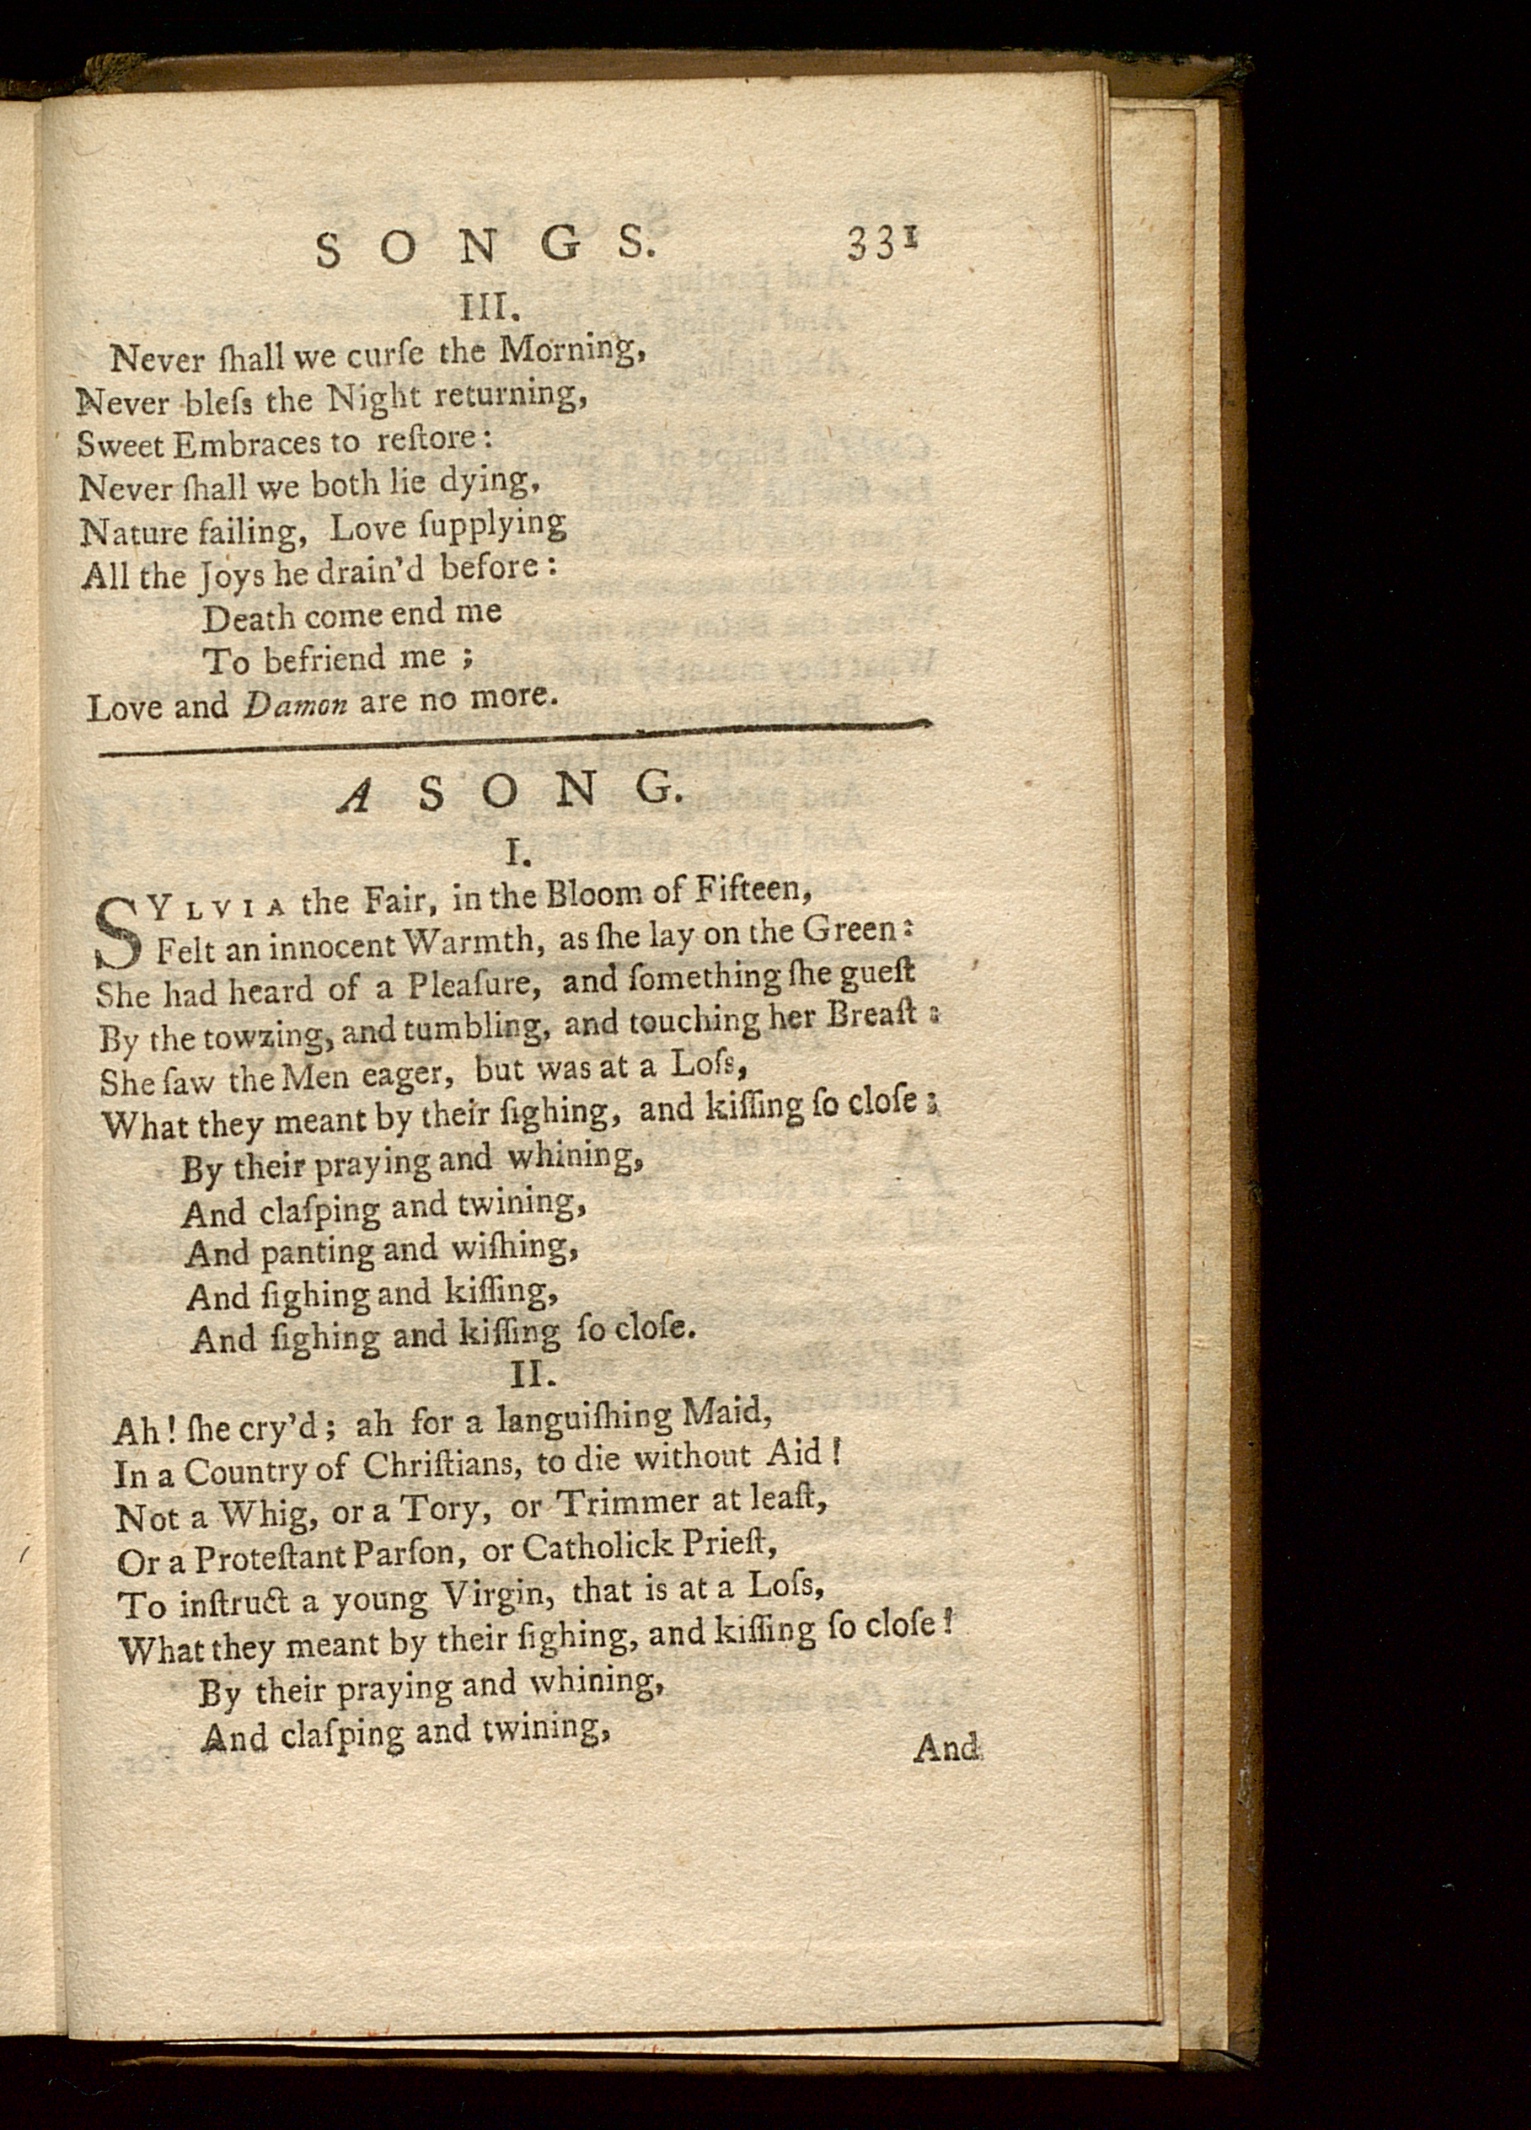 SONGS. 331
III.
Never ſhall we curſe the Morning,
Never bleſs the Night returning,
Sweet Embraces to reſtore:
Never ſhall we both lie dying,
Nature failing, Love ſupplying
All the Joys he drain'd before:
Death come end me
To befriend me;
Love and Damon are no more.
A SONG.
I.
SYLVIA the Fair, in the Bloom of Fifteen,
Felt an innocent Warmth, as ſhe lay on the Green:
She had heard of a Pleaſure, and ſomething ſhe gueſt
By the towzing, and tumbling, and touching her Breaſt:
She ſaw the Men eager, but was at a Loſs,
What they meant by their ſighing, and kiſſing ſo cloſe;
By their praying and whining,
And claſping and twining,
And panting and wiſhing,
And ſighing and kiſſing,
And ſighing and kiſſing ſo cloſe.
II.
Ah! ſhe cry'd; ah for a languiſhing Maid,
In a Country of Chriſtians, to die without Aid!
Not a Whig, or a Tory, or Trimmer at leaſt,
Or a Proteſtant Parſon, or Catholick Prieſt,
To inſtruct a young Virgin, that is at a Loſs,
What they meant by their ſighing, and kiſſing ſo cloſe!
By their praying and whining,
And claſping and twining,
And